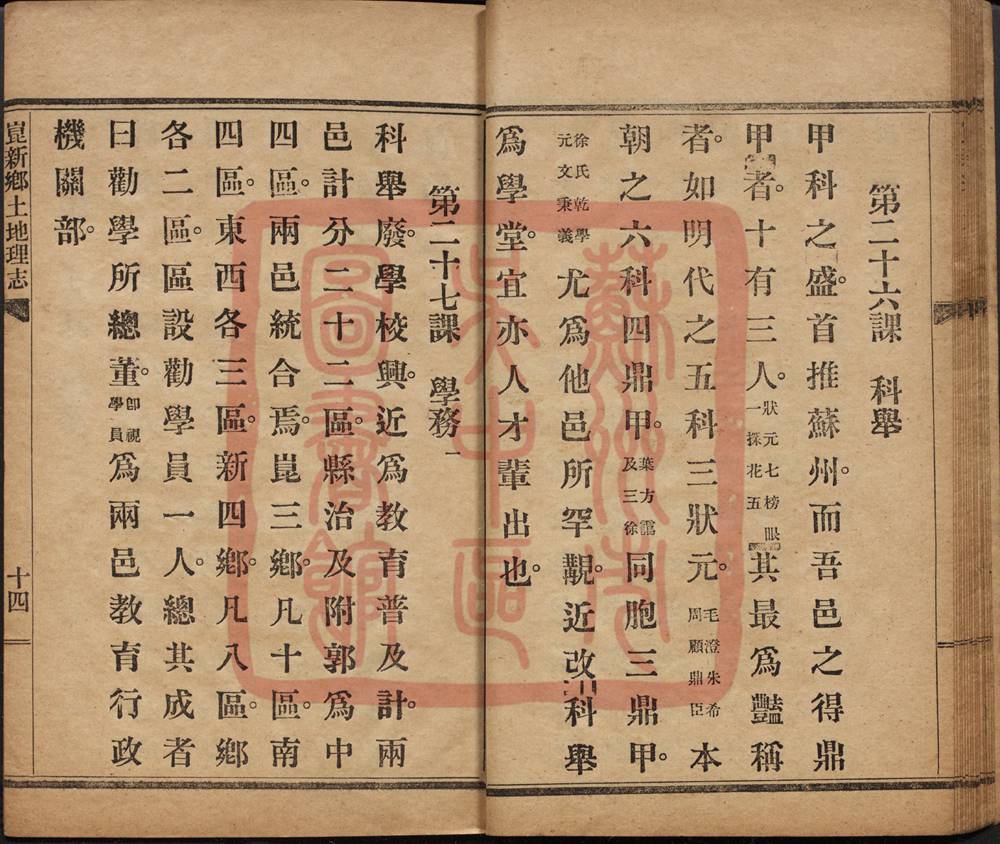 第二十六課　科舉
甲科之盛。首推蘇州。而吾邑之得鼎
甲者。十有三人。狀元七榜眼一探花五其最爲豔稱
者。如明代之五科三狀元。毛澄朱希周顧鼎臣本
朝之六科四鼎甲。葉方藹及三徐同胞三鼎甲。
徐氏乾學元文秉義尤爲他邑所罕覯。近改科舉
爲學堂。宜亦人才輩出也。
第二十七課　學務一
科舉廢。學校興。近爲教育普及計。兩
邑計分二十二區。縣治及附郭爲中
四區。兩邑統合焉。崑三鄉。凡十區。南
四區。東西各三區。新四鄉。凡八區。鄉
各二區。區設勸學員一人。總其成者
曰勸學所總董。卽視學員爲兩邑教育行政
機關部。
崑新鄉土地理志
十四
蘇州市吳中區圖書館